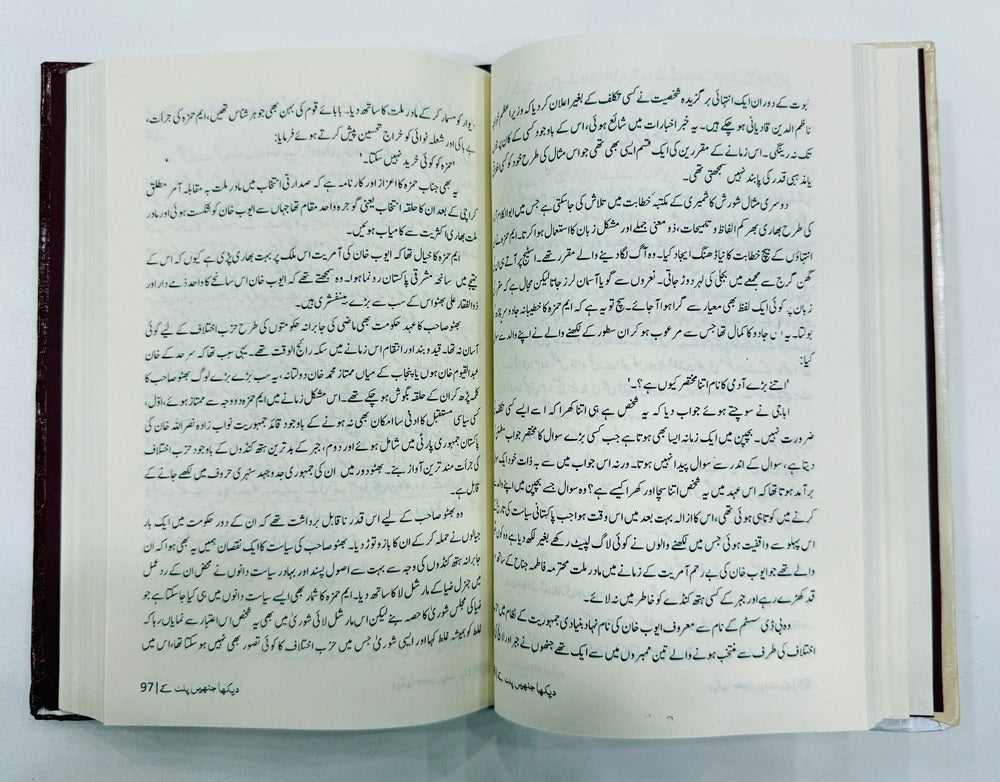 نبوت کے دوران ایک انتہائی برگزیدہ شخصیت نے کسی تکلف کے بغیر اعلان کر دیا کہ وزیر اعظم خواجہ
ناظم الدین قادیانی ہو چکے ہیں۔ یہ خبر اخبارات میں شائع ہوئی، اس کے باوجود کسی کے کان پر
تک نہ رینگی۔ اس زمانے کے مقررین کی ایک قسم ایسی بھی تھی جو اس مثال کی طرح خود کو کسی
یا مذہبی قدر کی پابند نہیں سمجھتی تھی۔
دوسری مثال شورش کاشمیری کے مکتبہ خطابت میں تلاش کی جا سکتی ہے جس میں ابوالکلام
کی طرح بھاری بھر کم الفاظ و تلمیحات، ذو معنی جملے اور مشکل زبان کا استعمال ہوا کرتا۔ ایم حمزہ
انتہاؤں کے بیچ خطابت کا نیا ڈھنگ ایجاد کیا۔ وہ آگ لگا دینے والے مقرر تھے۔ اسٹیج پر آتے ہی
گھن گرج سے مجمعے میں بجلی کی لہر دوڑ جاتی۔ نعروں سے گویا آسمان لرز جاتا لیکن مجال ہے کہ
زبان پر کوئی ایک لفظ بھی معیار سے گرا ہوا آ جائے۔ سچ تو یہ ہے کہ ایم حمزہ کا خطیبانہ جادو سر
بولتا۔ یہ اس جادو کا کمال تھا جس سے مرعوب ہو کر ان سطور کے لکھنے والے نے اپنے والد سے
کیا:
'اتنے بڑے آدمی کا نام اتنا مختصر کیوں ہے؟۔'
اباجی نے چپتے ہوئے جواب دیا کہ یہ شخص ہے ہی اتنا کھرا کہ اسے ایسے کسی
ضرورت نہیں۔ بچپن میں ایک زمانہ ایسا بھی ہوتا ہے جب کسی بڑے سوال کا مختصر جواب
دیتا ہے، سوال کے اندر سے سوال پیدا نہیں ہوتا۔ ورنہ اس جواب میں سے بہ ذات خود ایک
برآمد ہوتا تھا کہ اس عہد میں یہ شخص اتنا سچا اور کھرا کیسے ہے؟ وہ سوال جسے بچپن میں اپنے
کرنے میں کوتاہی ہوئی تھی، اس کا ازالہ بہت بعد میں اس وقت ہوا جب پاکستانی سیاست کی
اس پہلو سے واقفیت ہوئی جس میں لکھنے والوں نے کوئی لاگ لپیٹ رکھے بغیر لکھ دیا ہے
والے تھے جو ایوب خان کی بے رحم آمریت کے زمانے میں مادر ملت محترمہ فاطمہ جناح کے
قد کھڑے رہے اور جبر کے کسی ہتھ کنڈے کو خاطر میں نہ لائے۔
وہ بی ڈی سسٹم کے نام سے معروف ایوب خان کی نام نہاد بنیادی جمہوریت کے نظام میں
اختلاف کی طرف سے منتخب ہونے والے تین ممبروں میں سے ایک تھے جنھوں نے جبر اور
دیکھا جنھیں پلٹ کے
دیوار کو مسمار کر کے مادر ملت کا ساتھ دیا۔ بابائے قوم کی بہن بھی جوہر شناس تھیں، ایم حمزہ کی جرأت،
بے باکی اور شعلہ نوائی کو خراج تحسین پیش کرتے ہوئے فرمایا:
'حمزہ کو کوئی خرید نہیں سکتا۔'
یہ بھی جناب حمزہ کا اعزاز اور کارنامہ ہے کہ صدارتی انتخاب میں مادر ملت بہ مقابلہ آمر مطلق
کراچی کے بعد ان کا حلقہ انتخاب یعنی گوجرہ واحد مقام تھا جہاں سے ایوب خان کو شکست ہوئی اور مادر
ملت بھاری اکثریت سے کامیاب ہوئیں۔
ایم حمزہ کا خیال تھا کہ ایوب خان کی آمریت اس ملک پر بہت بھاری پڑی ہے کیوں کہ اس کے
نتیجے میں سانحہ مشرقی پاکستان رونما ہوا۔ وہ سمجھتے تھے کہ ایوب خان اس سانحے کا واحد ذمے دار اور
ذوالفقار علی بھٹو اس کے سب سے بڑے بینیفشری ہیں۔
بھٹو صاحب کا عہد حکومت بھی ماضی کی جابرانہ حکومتوں کی طرح حزب اختلاف کے لیے کوئی
آسان نہ تھا۔ قید و بند اور انتقام اس زمانے میں سکہ رائج الوقت تھے۔ یہی سبب تھا کہ سرحد کے خان
عبدالقیوم خان ہوں یا پنجاب کے میاں ممتاز محمد خان دولتانہ، یہ سب بڑے بڑے لوگ بھٹو صاحب کا
کلمہ پڑھ کر ان کے حلقہ بگوش ہو چکے تھے۔ اس مشکل زمانے میں ایم حمزہ دو وجہ سے ممتاز ہوئے، اوّل،
کسی سیاسی مستقبل کا ادنیٰ سا امکان بھی نہ ہونے کے باوجود قائد جمہوریت نواب زادہ نصر اللہ خان کی
پاکستان جمہوری پارٹی میں شامل ہوئے اور دوم، جبر کے بدترین ہتھ کنڈوں کے باوجود حزب اختلاف
کی جرأت مند ترین آواز بنے۔ بھٹو دور میں ان کی جمہوری جدوجہد سنہری حروف میں لکھے جانے کے
قابل ہے۔
وہ بھٹو صاحب کے لیے اس قدر ناقابل برداشت تھے کہ ان کے دور حکومت میں ایک بار
جیالوں نے حملہ کر کے ان کا بازو توڑ دیا۔ بھٹو صاحب کی سیاست کا ایک نقصان ہمیں یہ بھی ہوا کہ ان
جابرانہ ہتھ کنڈوں کی وجہ سے بہت سے اصول پسند اور بہادر سیاست دانوں نے محض ان کے رد عمل
میں جنرل ضیا کے مارشل لا کا ساتھ دیا۔ ایم حمزہ کا شمار بھی ایسے سیاست دانوں میں ہی کیا جا سکتا ہے جو
ضیا کی مجلس شوریٰ کا حصہ بنے لیکن اس مارشل لائی شوریٰ میں بھی یہ شخص اس اعتبار سے نمایاں رہا کہ
غلط کو ہمیشہ غلط کہا اور ایسی شوریٰ جس میں حزب اختلاف کا کوئی تصور بھی نہیں ہو سکتا تھا، اس میں
دیکھا جنھیں پلٹ کے | 97